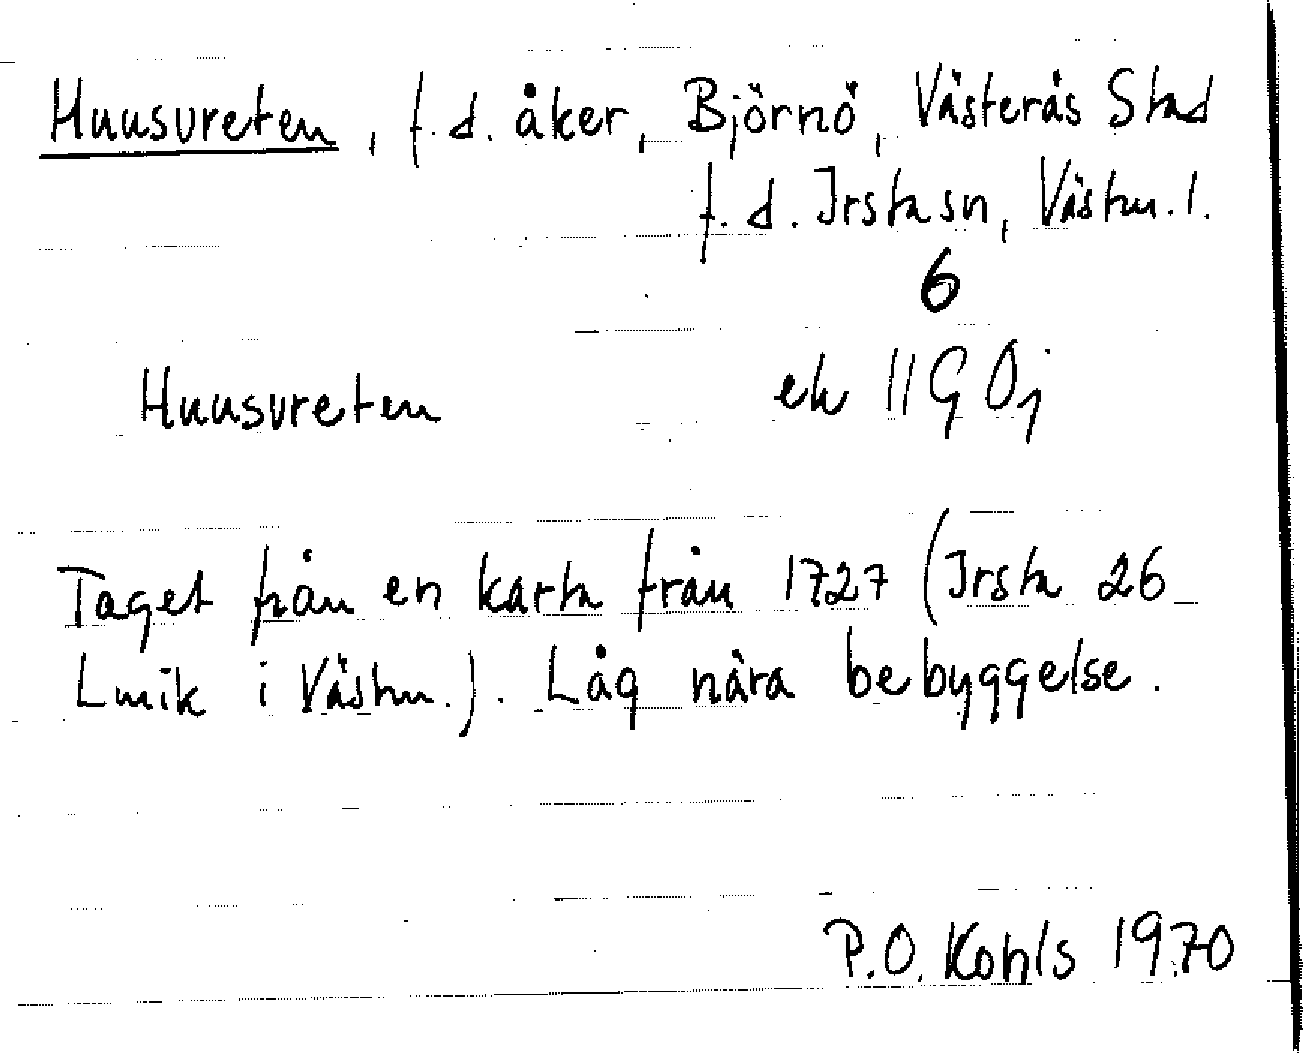 Huusvreten, f.d. åker, Björnö, Västerås Stad
f.d. Irsta sn, Västm. l.
6
Huusvreten ek 11G 0j
Taget från en karta från 1727 (Irsta 26
Lmik i Västm.). Låg nära bebyggelse.
P.O. Kohls 1970